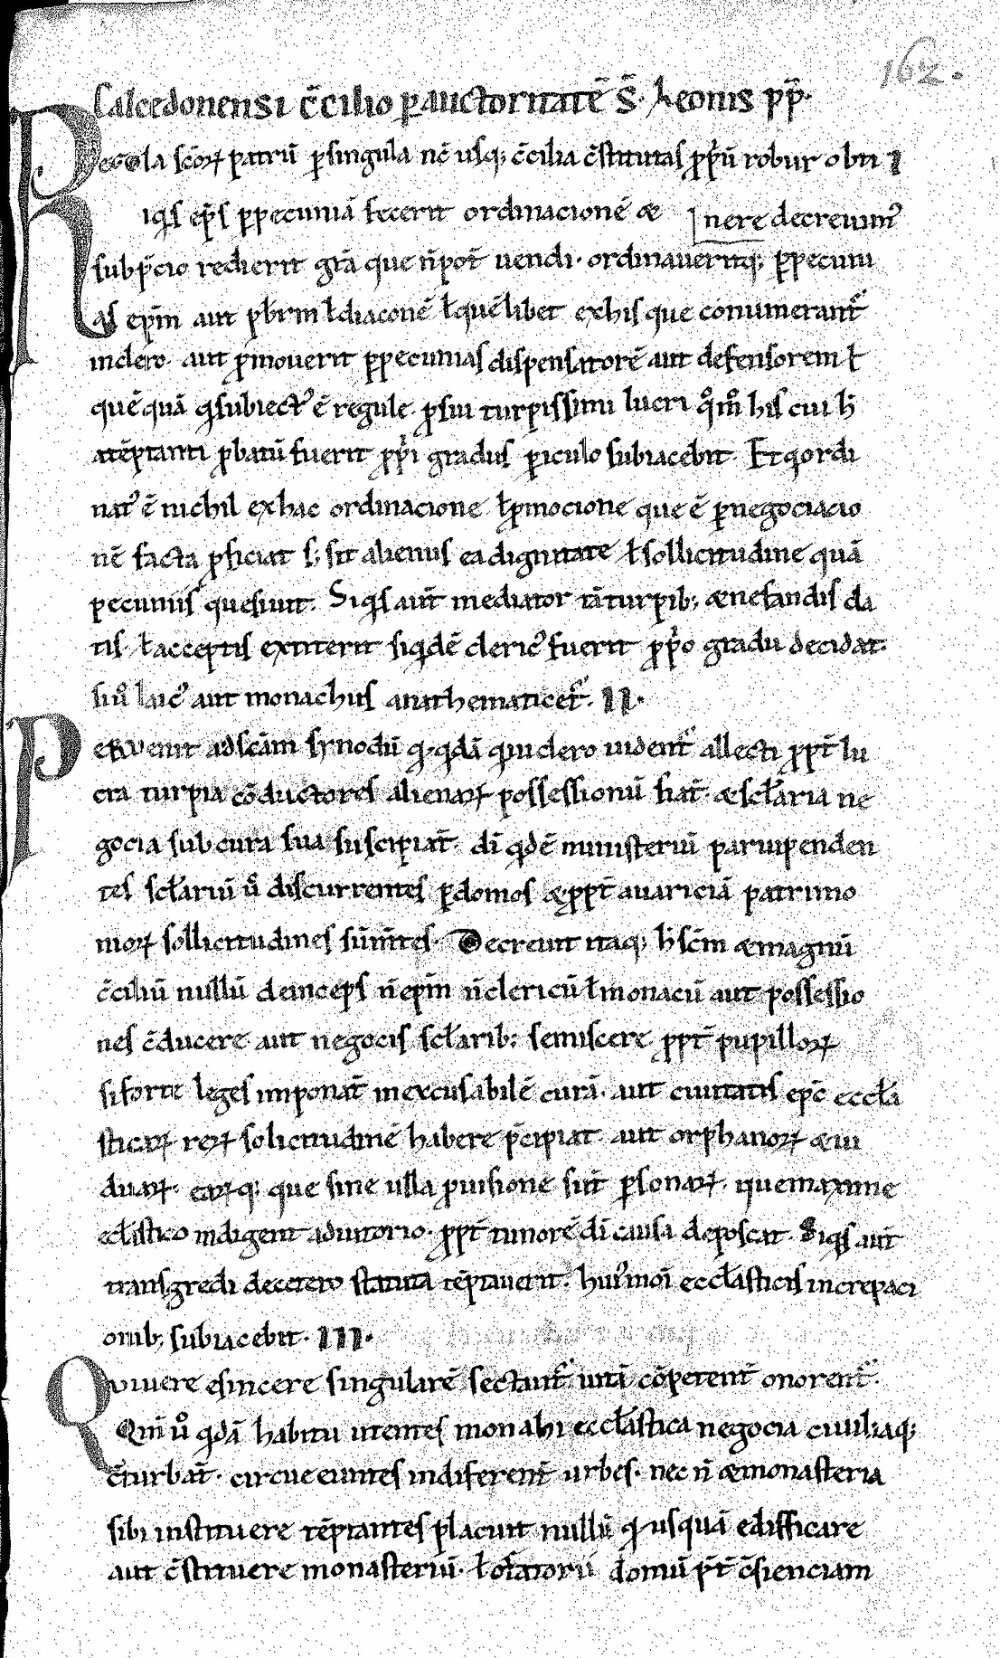 162.
Calcedonensi c̄cilio ꝑ auctoritatē S̄. Leonis pp̄.
Regola sc̄oꝝ patrū ꝑ singula nc̄ usq; c̄cilia c̄stitutas ꝓpͥū robur obti I
iqͥs ep̄s ꝑ pecuniā fecerit ordinacionē æ nere decreuimꝰ
sub p̄cio redierit gr̄a que n̄ pot̄ uendi. ordinaueritq; ꝑ pecuni
as ep̄m aut pb̄rm ł diaconē ł quēlibet ex his que conumerant᷑
in clero. aut ꝓmouerit ꝑ pecunias dispensatorē aut defensorem ł
quēquā qͥ subiectꝰ ē regule. ꝓ sui turpissimi lucri qͦm̄ his cui h̄
atēptanti ꝓbatū fuerit ꝓpͥi gradus ꝑiculo subiacebit. Et qͥ ordi
natꝰ ē nichil ex hac ordinacione ł ꝓmocione que ē ꝑ negociacio
nē facta ꝓficiat s; sit alienus ea dignitate ł sollicitudine quā
pecuniis quesiuit. Si qͥs aut̄ mediator tā turpib; æ nefandis da
tis ł acceptis extiterit siqͥdē clericꝰ fuerit ꝓpͥo gradu decidat.
si uͦ laicꝰ aut monachus anathematicet᷑. II.
Peruenit ad sc̄am synodū qꝛ qͥdā qui clero uident᷑ allecti ꝓpt̄ lu
cra turpia cōductores alienaꝝ possessionū fiāt. æ scłaria ne
gocia sub cura sua suscipiāt. dī qͥdē ministeriū paruipenden
tes scłariū uͦ discurrentes ꝑ domos æ ꝓpt̄ auariciā patrimo
nioꝝ sollicitudines sum̄tes. Decreuit itaq; h̄ sc̄m æ magnū
c̄ciliū nullū deinceps n̄ ep̄m n̄ clericū ł monacū aut possessio
nes c̄ducere aut negocis scłarib; se miscere ꝓpt̄ pupilloꝝ
si forte leges imponāt inexcusabilē curā. aut ciuitatis ep̄c eccłia
sticaꝝ reꝝ solicitudinē habere p̄cipiat aut orphanoꝝ æ ui
duaꝝ. eaꝝq; que sine ulla ꝓuisione sūt ꝑsonaꝝ. que maxime
ecłastico indigent adiutorio. ꝓpt̄ timorē dī causa deposcat. Siqͥs aut̄
transgredi decetero statuta tēptauerit. huiꝰmoī eccłasticis increpaci
onib; subiacebit. III.
Qui uere æ sincere singularē sectant᷑ uitā cōpetent̄ onorent᷑.
Qm̄ uͦ qͥdā habitu utentes monahi eccłastica negocia ciuiliaq;
c̄turbāt. circueuntes indiferent̄ urbes. nec n̄ æ monasteria
sibi instituere tēptantes placuit nullū qͥ usquā edifficare
aut c̄stituere monasteriū. ł oratorii domū p̄t c̄scienciam